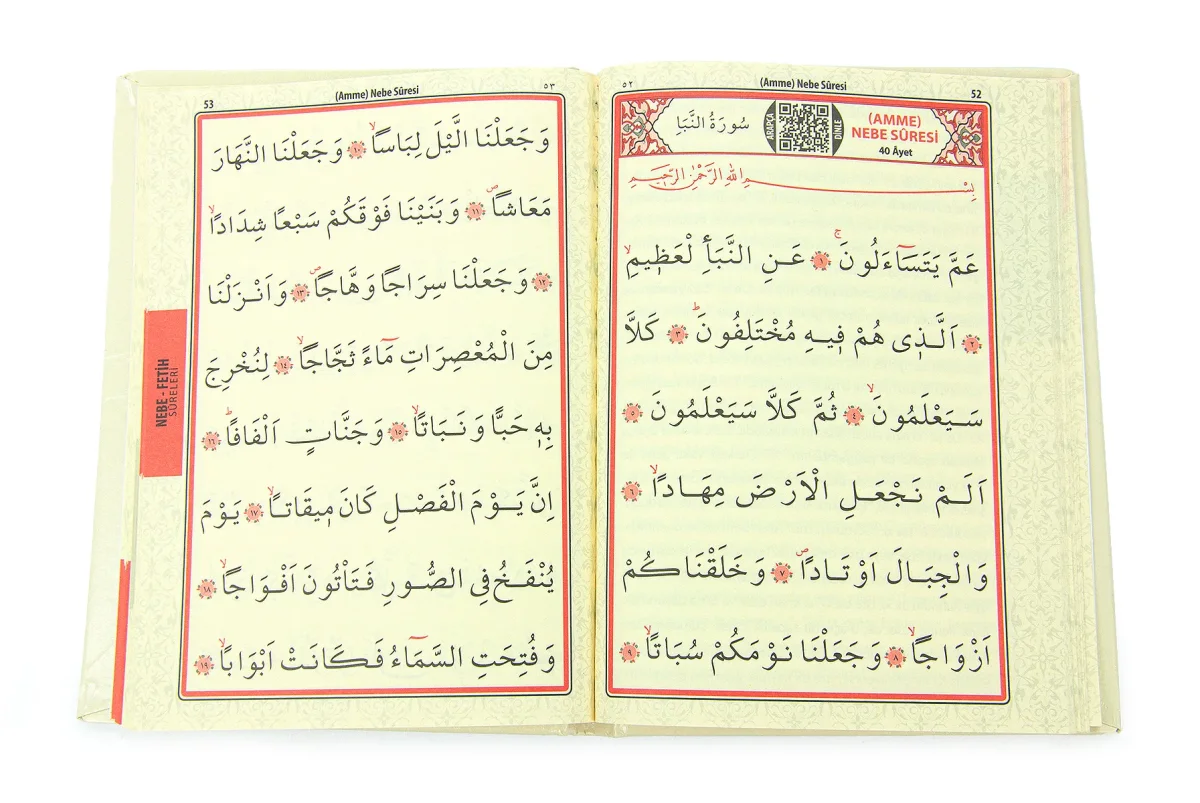 ٥٢ (Amme) Nebe Sûresi 52
سُورَةُ النَّبَأِ
ARAPÇA DİNLE
(AMME)
NEBE SÛRESİ
40 Âyet
بِسْمِ اللهِ الرَّحْمٰنِ الرَّحِيمِ
عَمَّ يَتَسَآءَلُونَۚ ﴿١﴾ عَنِ النَّبَأِ لْعَظ۪يمِۙ
﴿٢﴾ اَلَّذ۪ى هُمْ ف۪يهِ مُخْتَلِفُونَۜ ﴿٣﴾ كَلاَّ
سَيَعْلَمُونَۙ ﴿٤﴾ ثُمَّ كَلاَّ سَيَعْلَمُونَ ﴿٥﴾
اَلَمْ نَجْعَلِ الْاَرْضَ مِهَادًاۙ ﴿٦﴾
وَالْجِبَالَ اَوْتَادًاۖ ﴿٧﴾ وَخَلَقْنَاكُمْ
اَزْوَاجًاۙ ﴿٨﴾ وَجَعَلْنَا نَوْمَكُمْ سُبَاتًاۙ ﴿٩﴾
53 (Amme) Nebe Sûresi ٥٣
وَجَعَلْنَا الَّيْلَ لِبَاسًاۙ ﴿١٠﴾ وَجَعَلْنَا النَّهَارَ
مَعَاشًاۖ ﴿١١﴾ وَبَنَيْنَا فَوْقَكُمْ سَبْعًا شِدَادًاۙ
﴿١٢﴾ وَجَعَلْنَا سِرَاجًا وَهَّاجًاۖ ﴿١٣﴾ وَاَنْزَلْنَا
مِنَ الْمُعْصِرَاتِ مَآءً ثَجَّاجًاۙ ﴿١٤﴾ لِنُخْرِجَ
بِه۪ حَبًّا وَنَبَاتًاۙ ﴿١٥﴾ وَجَنَّاتٍ اَلْفَافًاۜ ﴿١٦﴾
اِنَّ يَوْمَ الْفَصْلِ كَانَ م۪يقَاتًاۙ ﴿١٧﴾ يَوْمَ
يُنْفَخُ فِى الصُّورِ فَتَأْتُونَ اَفْوَاجًاۙ ﴿١٨﴾
وَفُتِحَتِ السَّمَآءُ فَكَانَتْ اَبْوَابًاۙ ﴿١٩﴾
NEBE - FETİH
SÛRELERİ